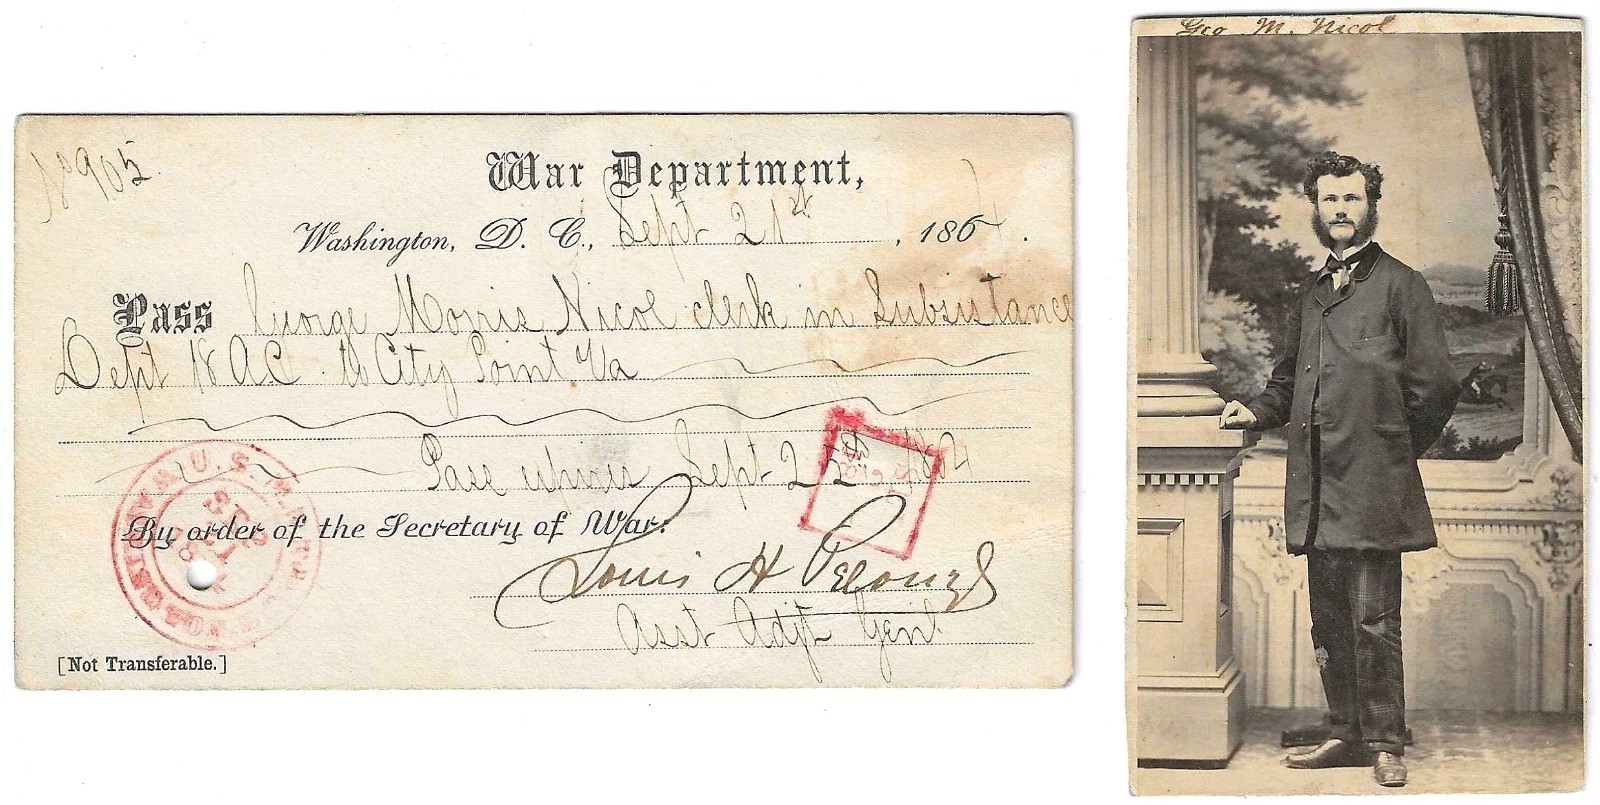 No 905
War Department,
Washington, D. C., Sept 21st, 1864.
Pass George Morris Nicol clerk in Subsistance
Dept 18 A.C. to City Point Va
Pass expires Sept 22d 1864
By order of the Secretary of War:
Louis H Pelouze
Asst Adjt Genl
[Not Transferable.]
U. S.
Geo M. Nicol